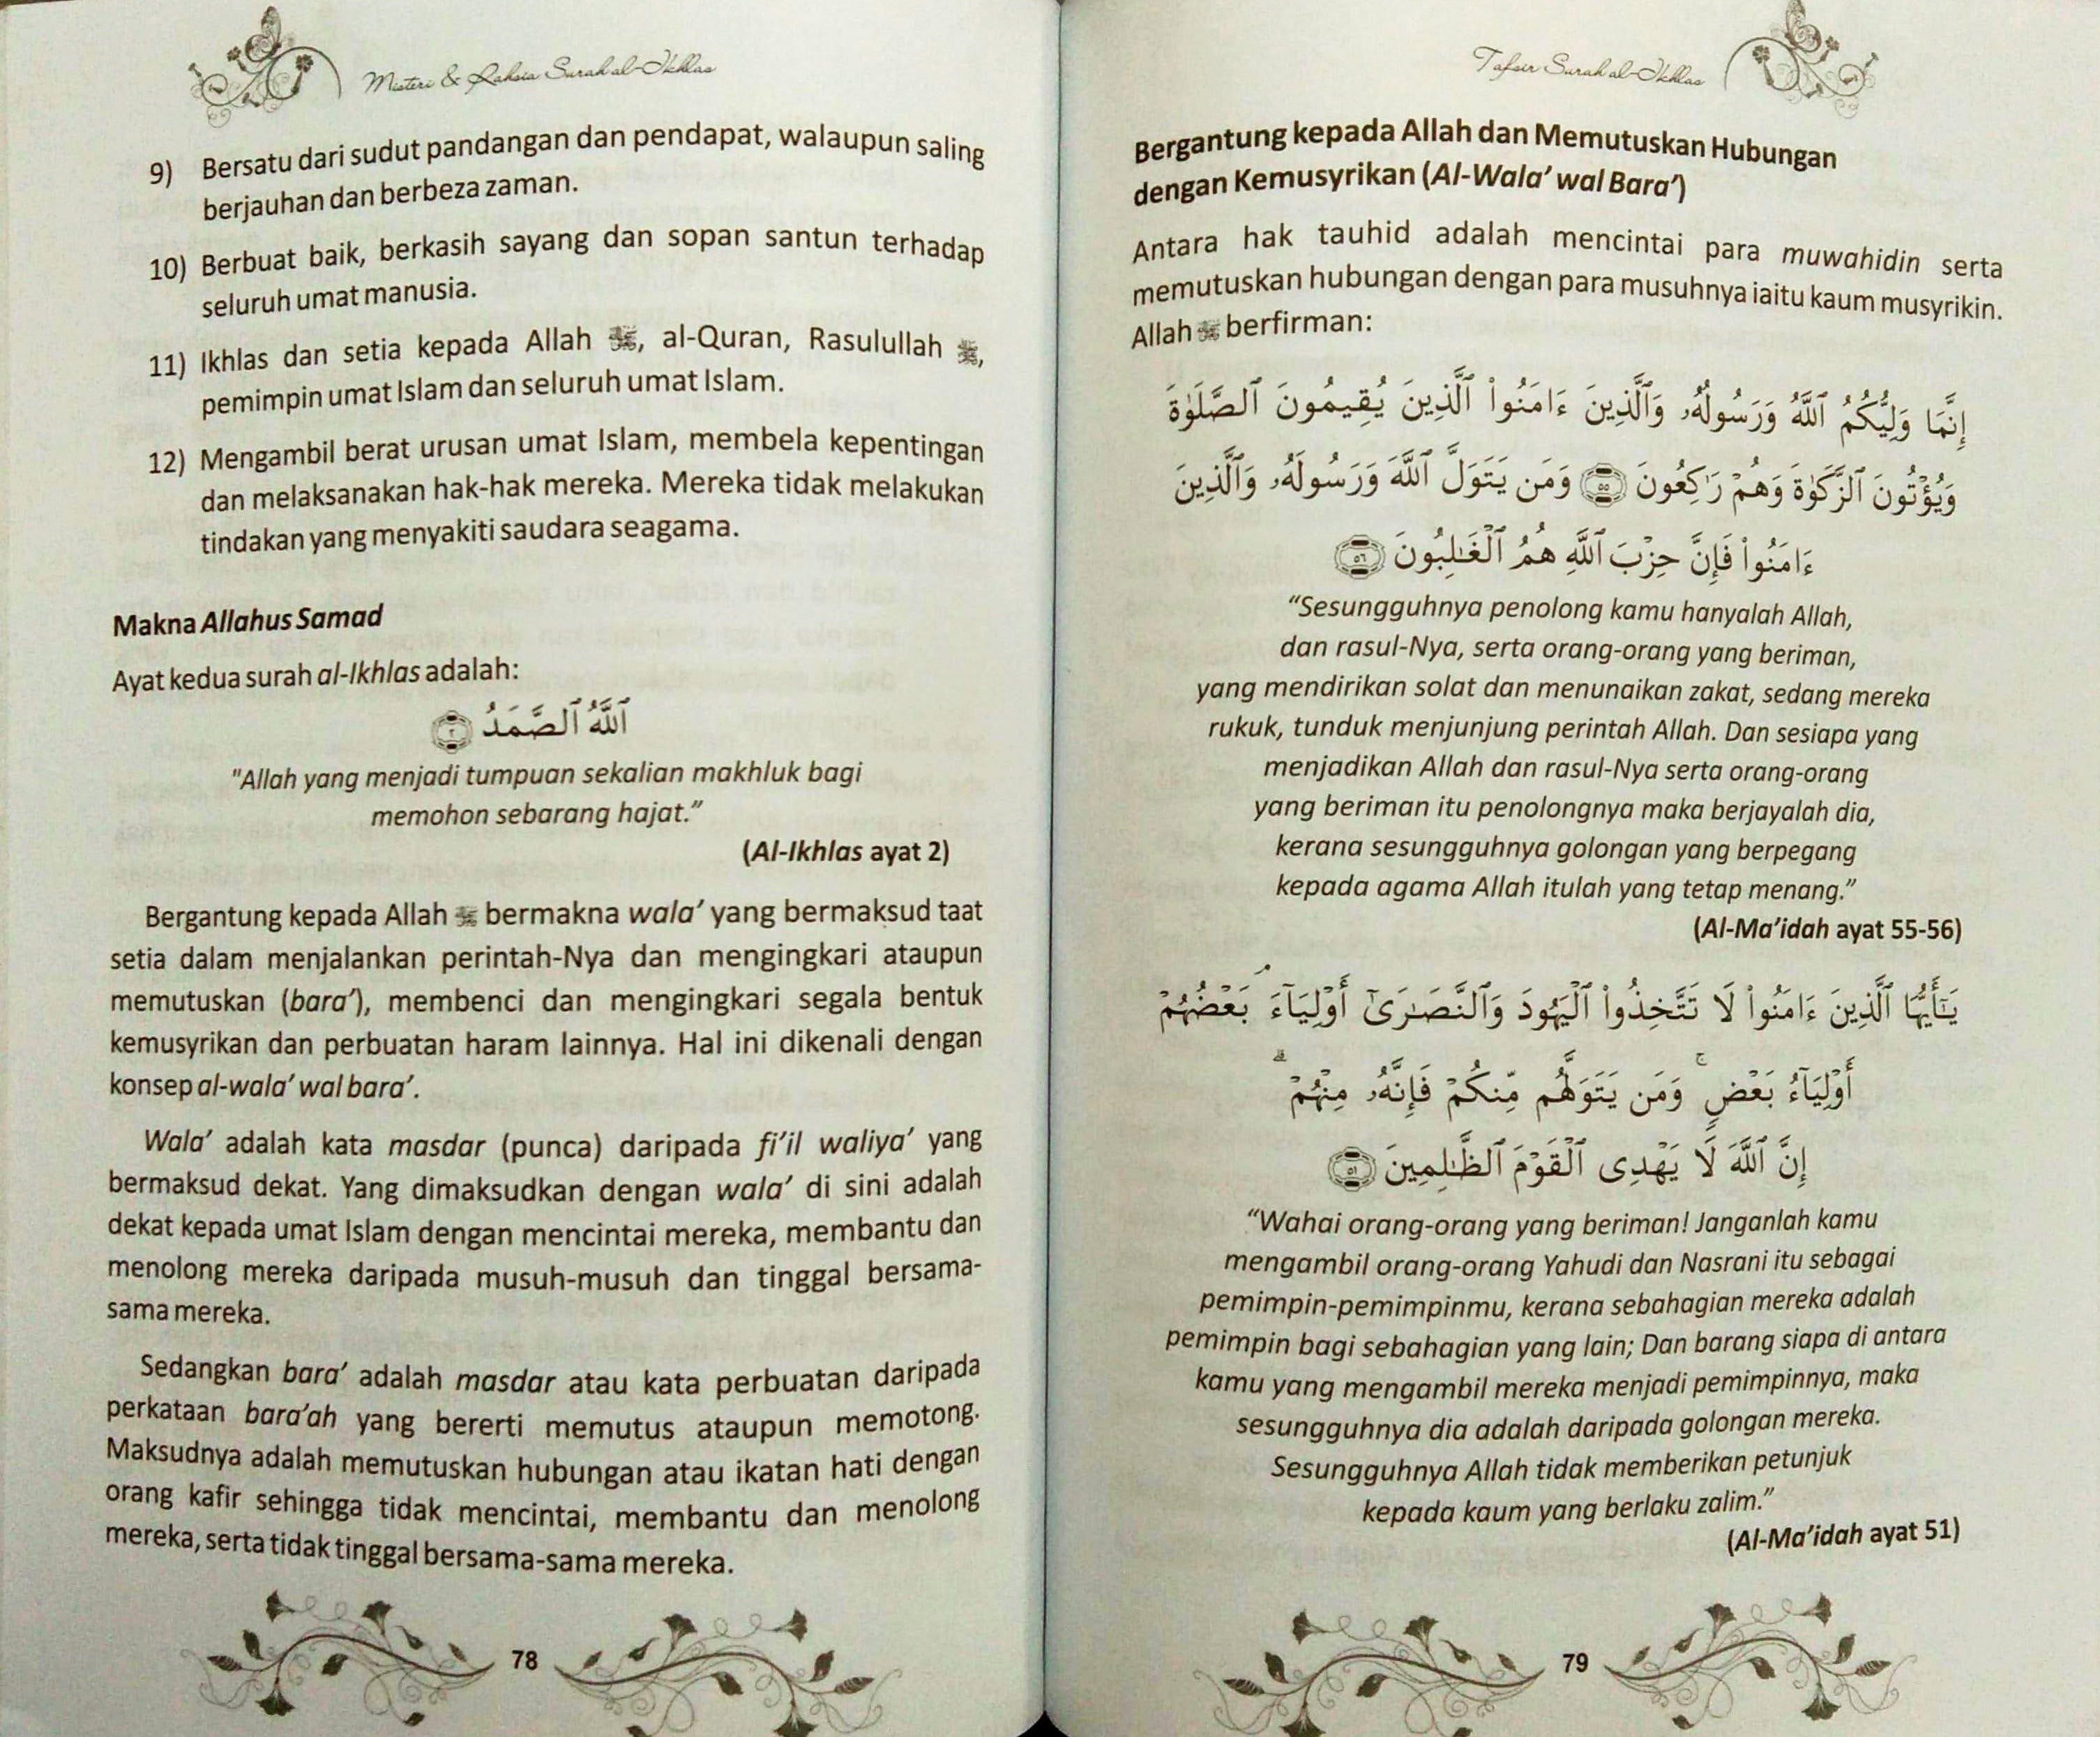 Misteri & Rahsia Surah al-Ikhlas
9) Bersatu dari sudut pandangan dan pendapat, walaupun saling
berjauhan dan berbeza zaman.
10) Berbuat baik, berkasih sayang dan sopan santun terhadap
seluruh umat manusia.
11) Ikhlas dan setia kepada Allah ﷻ, al-Quran, Rasulullah ﷺ,
pemimpin umat Islam dan seluruh umat Islam.
12) Mengambil berat urusan umat Islam, membela kepentingan
dan melaksanakan hak-hak mereka. Mereka tidak melakukan
tindakan yang menyakiti saudara seagama.
Makna Allahus Samad
Ayat kedua surah al-Ikhlas adalah:
ٱللَّهُ ٱلصَّمَدُ ٢
"Allah yang menjadi tumpuan sekalian makhluk bagi
memohon sebarang hajat.”
(Al-Ikhlas ayat 2)
Bergantung kepada Allah ﷻ bermakna wala’ yang bermaksud taat
setia dalam menjalankan perintah-Nya dan mengingkari ataupun
memutuskan (bara’), membenci dan mengingkari segala bentuk
kemusyrikan dan perbuatan haram lainnya. Hal ini dikenali dengan
konsep al-wala’ wal bara’.
Wala’ adalah kata masdar (punca) daripada fi’il waliya’ yang
bermaksud dekat. Yang dimaksudkan dengan wala’ di sini adalah
dekat kepada umat Islam dengan mencintai mereka, membantu dan
menolong mereka daripada musuh-musuh dan tinggal bersama-
sama mereka.
Sedangkan bara’ adalah masdar atau kata perbuatan daripada
perkataan bara’ah yang bererti memutus ataupun memotong.
Maksudnya adalah memutuskan hubungan atau ikatan hati dengan
orang kafir sehingga tidak mencintai, membantu dan menolong
mereka, serta tidak tinggal bersama-sama mereka.
78
Tafsir Surah al-Ikhlas
Bergantung kepada Allah dan Memutuskan Hubungan
dengan Kemusyrikan (Al-Wala’ wal Bara’)
Antara hak tauhid adalah mencintai para muwahidin serta
memutuskan hubungan dengan para musuhnya iaitu kaum musyrikin.
Allah ﷻ berfirman:
إِنَّمَا وَلِيُّكُمُ ٱللَّهُ وَرَسُولُهُۥ وَٱلَّذِينَ ءَامَنُوا۟ ٱلَّذِينَ يُقِيمُونَ ٱلصَّلَوٰةَ
وَيُؤْتُونَ ٱلزَّكَوٰةَ وَهُمْ رَٰكِعُونَ ٥٥ وَمَن يَتَوَلَّ ٱللَّهَ وَرَسُولَهُۥ وَٱلَّذِينَ
ءَامَنُوا۟ فَإِنَّ حِزْبَ ٱللَّهِ هُمُ ٱلْغَٰلِبُونَ ٥٦
“Sesungguhnya penolong kamu hanyalah Allah,
dan rasul-Nya, serta orang-orang yang beriman,
yang mendirikan solat dan menunaikan zakat, sedang mereka
rukuk, tunduk menjunjung perintah Allah. Dan sesiapa yang
menjadikan Allah dan rasul-Nya serta orang-orang
yang beriman itu penolongnya maka berjayalah dia,
kerana sesungguhnya golongan yang berpegang
kepada agama Allah itulah yang tetap menang.”
(Al-Ma’idah ayat 55-56)
يَٰٓأَيُّهَا ٱلَّذِينَ ءَامَنُوا۟ لَا تَتَّخِذُوا۟ ٱلْيَهُودَ وَٱلنَّصَٰرَىٰٓ أَوْلِيَآءَ ۘ بَعْضُهُمْ
أَوْلِيَآءُ بَعْضٍ ۚ وَمَن يَتَوَلَّهُم مِّنكُمْ فَإِنَّهُۥ مِنْهُمْ ۗ
إِنَّ ٱللَّهَ لَا يَهْدِى ٱلْقَوْمَ ٱلظَّٰلِمِينَ ٥١
“Wahai orang-orang yang beriman! Janganlah kamu
mengambil orang-orang Yahudi dan Nasrani itu sebagai
pemimpin-pemimpinmu, kerana sebahagian mereka adalah
pemimpin bagi sebahagian yang lain; Dan barang siapa di antara
kamu yang mengambil mereka menjadi pemimpinnya, maka
sesungguhnya dia adalah daripada golongan mereka.
Sesungguhnya Allah tidak memberikan petunjuk
kepada kaum yang berlaku zalim.”
(Al-Ma’idah ayat 51)
79